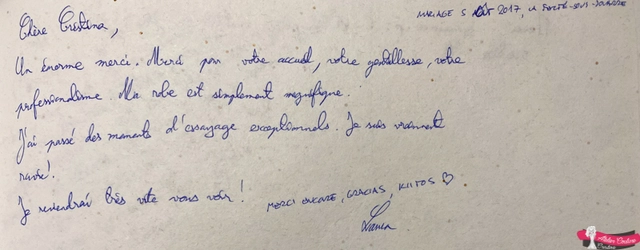 MARIAGE 5 AOÛT 2017, LA FERTÉ-SOUS-JOUARRE
Chère Cristina,
Un énorme merci. Merci pour votre accueil, votre gentillesse, votre
professionalisme. Ma robe est simplement magnifique.
J'ai passé des moments d'essayage exceptionnels. Je suis vraiment
ravie!
Je reviendrai très vite vous voir!
MERCI ENCORE, GRACIAS, KIITOS ♡
Laura
Atelier Couture